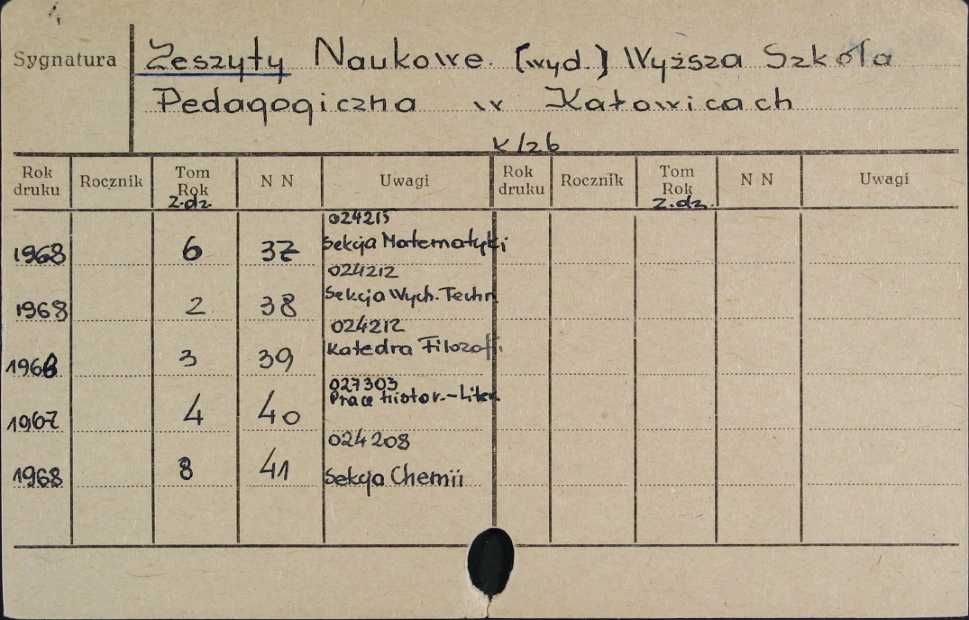 Sygnatura Zeszyty Naukowe. [wyd.] Wyższa Szkoła
Pedagogiczna w Katowicach
K/zb
Rok druku Rocznik Tom Rok z.dz. N N Uwagi Rok druku Rocznik Tom Rok z.dz. N N Uwagi
024215
1968 6 37 Sekcja Matematyki
024212
1968 2 38 Sekcja Wych. Techn
024212
1968 3 39 Katedra Filozofi.
027303
1967 4 40 Prace histor.-Liter
024208
1968 8 41 Sekcja Chemii